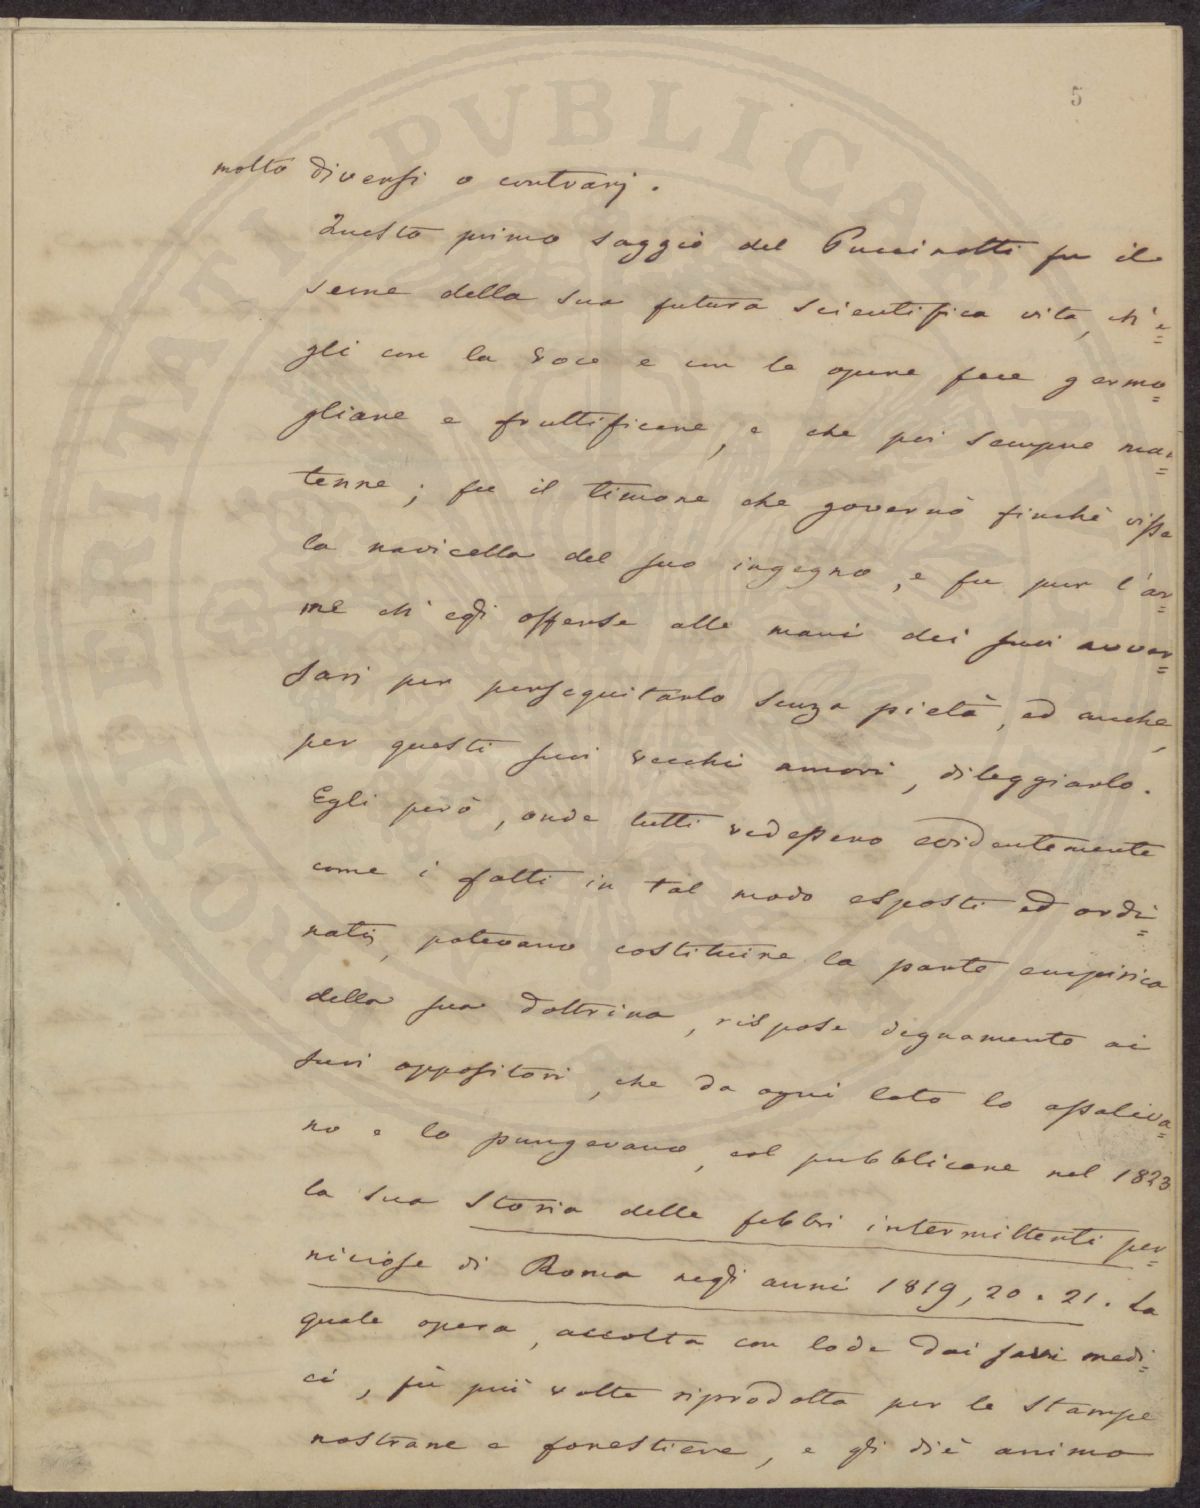 5
molto diversi o contrarj.
Questo primo saggio del Puccinotti fu il
seme della sua futura scientifica vita, ch'e=
gli con la voce e con le opere fece germo=
gliare e fruttificare, e che poi sempre man=
tenne; fu il timone che governò finchè visse
la navicella del suo ingegno, e fu pur l'ar=
me ch'egli offerse alle mani dei suoi avver=
sari per perseguitarlo senza pietà, ed anche,
per questi suoi vecchi amori, dileggiarlo.
Egli però, onde tutti vedessero evidentemente
come i fatti in tal modo esposti ed ordi=
nati, potevano costituire la parte empirica
della sua dottrina, rispose degnamente ai
suoi oppositori, che da ogni lato lo assaliva=
no e lo pungevano, col pubblicare nel 1823
la sua Storia delle febbri intermittenti per=
niciose di Roma negli anni 1819, 20. 21. La
quale opera, accolta con lode dai savi medi=
ci, fù più volte riprodotta per le stampe
nostrane e forestiere, e gli diè animo
PROSPERITATI PVBLICAE